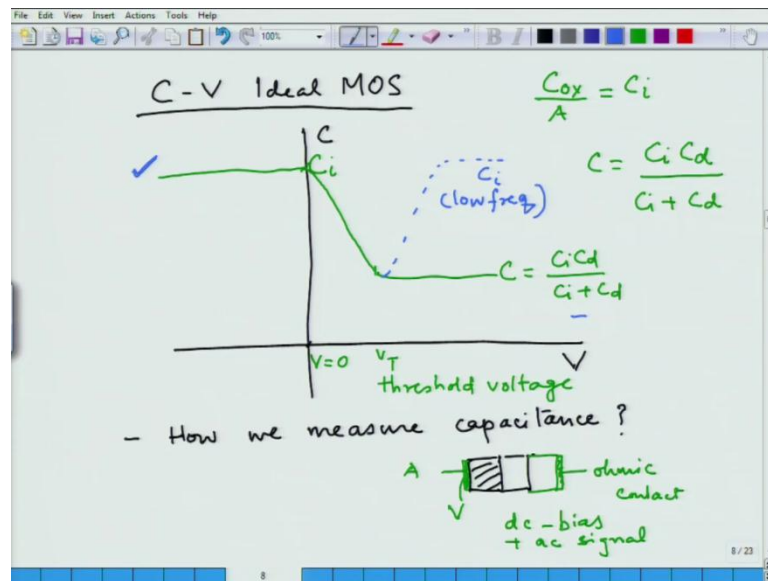 File Edit View Insert Actions Tools Help
100%
B I
C-V Ideal MOS
Cox/A = Ci
C
Ci
C = CiCd/Ci + Cd
Ci
(low freq)
C = CiCd/Ci + Cd
V=0
VT
V
threshold voltage
- How we measure capacitance?
A
ohmic
contact
V
dc-bias
+ ac signal
8/23
8